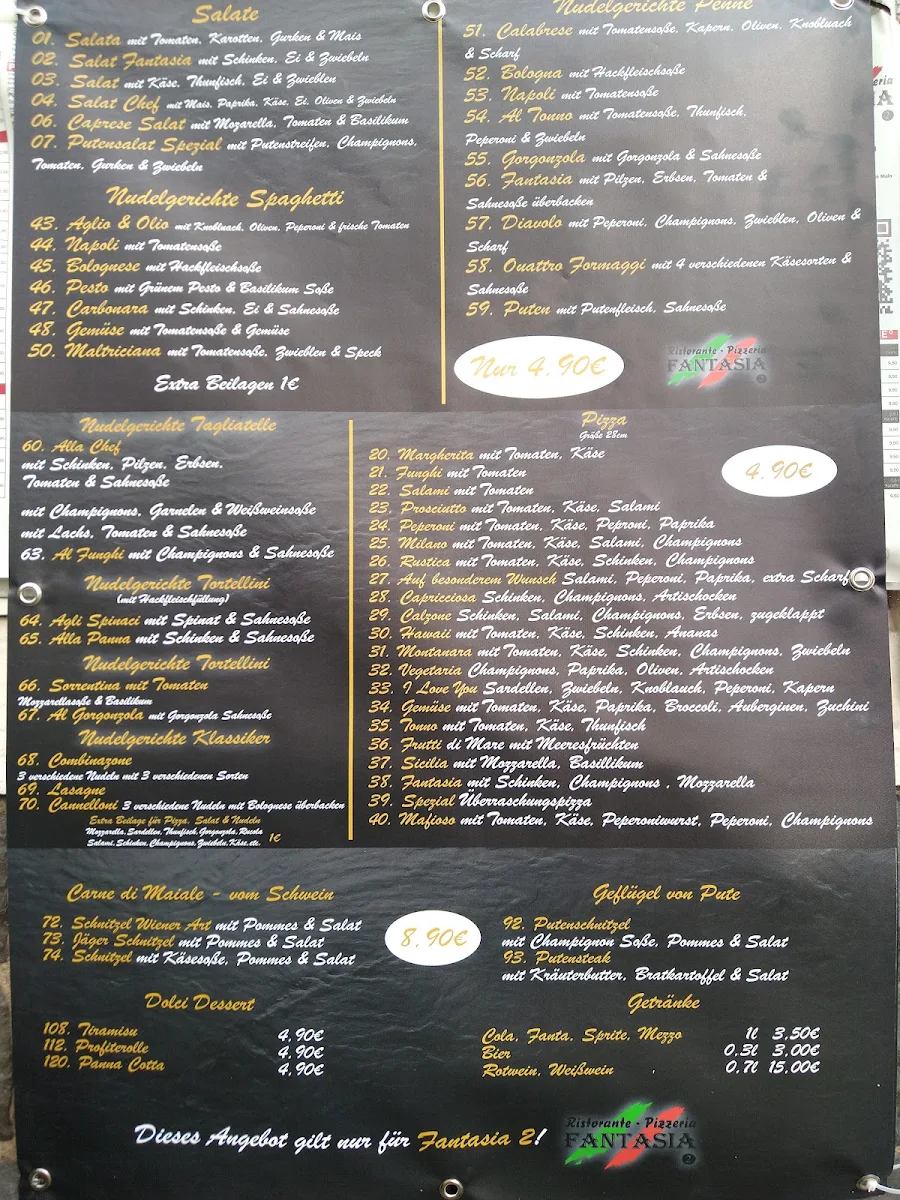 Salate
01. Salata mit Tomaten, Karotten, Gurken & Mais
02. Salat Fantasia mit Schinken, Ei & Zwiebeln
03. Salat mit Käse, Thunfisch, Ei & Zwieblen
04. Salat Chef mit Mais, Paprika, Käse, Ei, Oliven & Zwiebeln
06. Caprese Salat mit Mozarella, Tomaten & Basilikum
07. Putensalat Spezial mit Putenstreifen, Champignons,
Tomaten, Gurken & Zwiebeln
Nudelgerichte Spaghetti
43. Aglio & Olio mit Knoblauch, Oliven, Peperoni & frische Tomaten
44. Napoli mit Tomatensoße
45. Bolognese mit Hackfleischsoße
46. Pesto mit Grünem Pesto & Basilikum Soße
47. Carbonara mit Schinken, Ei & Sahnesoße
48. Gemüse mit Tomatensoße & Gemüse
50. Maltriciana mit Tomatensoße, Zwieblen & Speck
Extra Beilagen 1€
Nudelgerichte Penne
51. Calabrese mit Tomatensoße, Kapern, Oliven, Knobluach
& Scharf
52. Bologna mit Hackfleischsoße
53. Napoli mit Tomatensoße
54. Al Tonno mit Tomatensoße, Thunfisch,
Peperoni & Zwiebeln
55. Gorgonzola mit Gorgonzola & Sahnesoße
56. Fantasia mit Pilzen, Erbsen, Tomaten &
Sahnesoße überbacken
57. Diavolo mit Peperoni, Champignons, Zwieblen, Oliven &
Scharf
58. Quattro Formaggi mit 4 verschiedenen Käsesorten &
Sahnesoße
59. Puten mit Putenfleisch, Sahnesoße
Nur 4.90€
Ristorante · Pizzeria
FANTASIA
2
Nudelgerichte Tagliatelle
60. Alla Chef
mit Schinken, Pilzen, Erbsen,
Tomaten & Sahnesoße
mit Champignons, Garnelen & Weißweinsoße
mit Lachs, Tomaten & Sahnesoße
63. Al Funghi mit Champignons & Sahnesoße
Nudelgerichte Tortellini
(mit Hackfleischfüllung)
64. Agli Spinaci mit Spinat & Sahnesoße
65. Alla Panna mit Schinken & Sahnesoße
Nudelgerichte Tortellini
66. Sorrentina mit Tomaten
Mozzarellasoße & Basilikum
67. Al Gorgonzola mit Gorgonzola Sahnesoße
Nudelgerichte Klassiker
68. Combinazone
3 verschiedene Nudeln mit 3 verschiedenen Sorten
69. Lasagne
70. Cannelloni 3 verschiedene Nudeln mit Bolognese überbacken
Extra Beilage für Pizza, Salat & Nudeln
Mozzarella, Sardellen, Thunfisch, Gorgonzola, Rucola
Salami, Schinken, Champignons, Zwiebeln, Käse, etc. 1€
Pizza
Größe 28cm
4.90€
20. Margherita mit Tomaten, Käse
21. Funghi mit Tomaten
22. Salami mit Tomaten
23. Prosciutto mit Tomaten, Käse, Salami
24. Peperoni mit Tomaten, Käse, Peproni, Paprika
25. Milano mit Tomaten, Käse, Salami, Champignons
26. Rustica mit Tomaten, Käse, Schinken, Champignons
27. Auf besonderem Wunsch Salami, Peperoni, Paprika, extra Scharf
28. Capricciosa Schinken, Champignons, Artischocken
29. Calzone Schinken, Salami, Champignons, Erbsen, zugeklappt
30. Hawaii mit Tomaten, Käse, Schinken, Ananas
31. Montanara mit Tomaten, Käse, Schinken, Champignons, Zwiebeln
32. Vegetaria Champignons, Paprika, Oliven, Artischocken
33. I Love You Sardellen, Zwiebeln, Knoblauch, Peperoni, Kapern
34. Gemüse mit Tomaten, Käse, Paprika, Broccoli, Auberginen, Zuchini
35. Tonno mit Tomaten, Käse, Thunfisch
36. Frutti di Mare mit Meeresfrüchten
37. Sicilia mit Mozzarella, Basillikum
38. Fantasia mit Schinken, Champignons , Mozzarella
39. Spezial Überraschungspizza
40. Mafioso mit Tomaten, Käse, Peperoniwurst, Peperoni, Champignons
Carne di Maiale - vom Schwein
72. Schnitzel Wiener Art mit Pommes & Salat
73. Jäger Schnitzel mit Pommes & Salat
74. Schnitzel mit Käsesoße, Pommes & Salat
8.90€
Geflügel von Pute
92. Putenschnitzel
mit Champignon Soße, Pommes & Salat
93. Putensteak
mit Kräuterbutter, Bratkartoffel & Salat
Dolci Dessert
108. Tiramisu 4.90€
112. Profiterolle 4.90€
120. Panna Cotta 4.90€
Getränke
Cola, Fanta, Sprite, Mezzo 1l 3,50€
Bier 0,3l 3,00€
Rotwein, Weißwein 0,7l 15,00€
Dieses Angebot gilt nur für Fantasia 2!
Ristorante · Pizzeria
FANTASIA
2